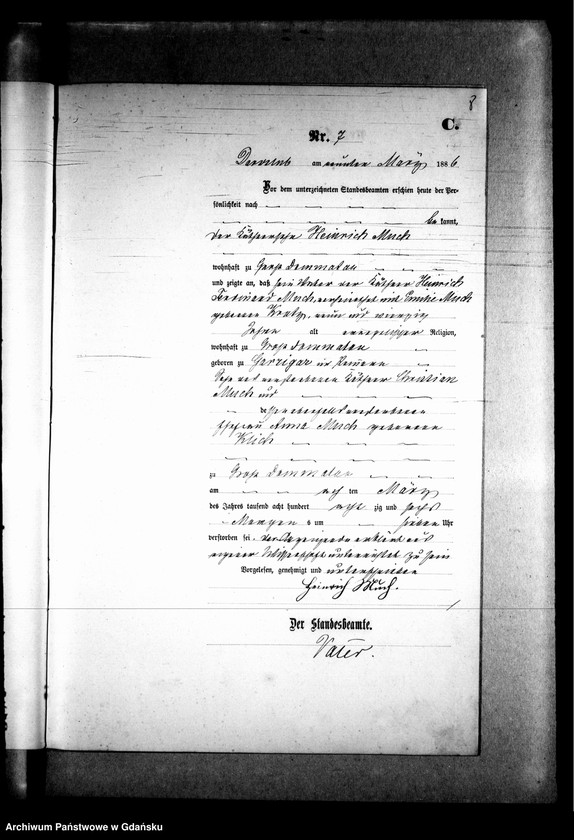 8
C.
Nr. 7
am neunten März 1886.
Vor dem unterzeichneten Standesbeamten erschien heute der Per-
sönlichkeit nach
be kannt,
der Käthnersohn Heinrich Much
wohnhaft zu Groß Dammatau
und zeigte an, daß sein Vater der Käthner Heinrich
Ferdinand Much, verheirathet mit Emilie Much
geborenen Kratz, neun und vierzig
Jahre alt evangelischer Religion,
wohnhaft zu Groß Dammatau
geboren zu Garzigar in Pommern
Sohn des verstorbenen Käthner Christian
Much und
dessen ebenfalls verstorbenen
Ehefrau Anna Much geborenen
Klich
zu Groß Dammatau
am acht ten März
des Jahres tausend acht hundert acht zig und sechs
Morgens um sieben Uhr
verstorben sei, der Anzeigende erklärt aus
eigener Wissenschaft unterrichtet zu sein
Vorgelesen, genehmigt und unterschrieben
Heinrich Much.
Der Standesbeamte.
Vater.
Archiwum Państwowe w Gdańsku